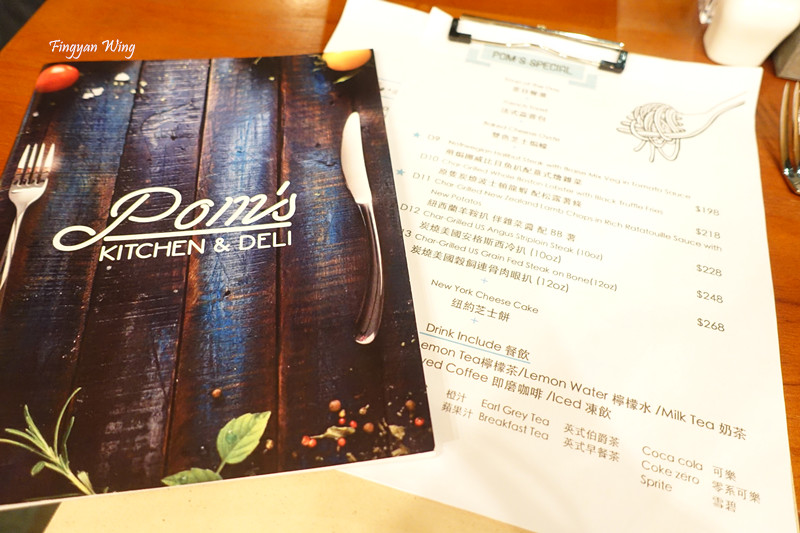 Fingyan Wing
Pom's
KITCHEN & DELI
POM'S SPECIAL
D9
D10 Char Grilled Whole Boston Lobster with Black Truffle Fries
$198
D11 Char Grilled New Zealand Lamb Chops in Rich Ratatouille Sauce with
New Potatos
$218
紐西蘭羊鞍扒 伴雜菜醬 配 BB 薯
D12 Char-Grilled US Angus Striploin Steak (10oz)
$228
炭燒美國安格斯西冷扒 (10oz)
3 Char-Grilled US Grain Fed Steak on Bone(12oz)
$248
炭燒美國穀飼連骨肉眼扒 (12oz)
$268
+
New York Cheese Cake
紐約芝士餅
+
Drink Include 餐飲
emon Tea檸檬茶/Lemon Water 檸檬水 /Milk Tea 奶茶
ved Coffee 即磨咖啡 /Iced 凍飲
橙汁 Earl Grey Tea 英式伯爵茶 Coca cola 可樂
蘋果汁 Breakfast Tea 英式早餐茶 Coke zero 零系可樂
Sprite 雪碧